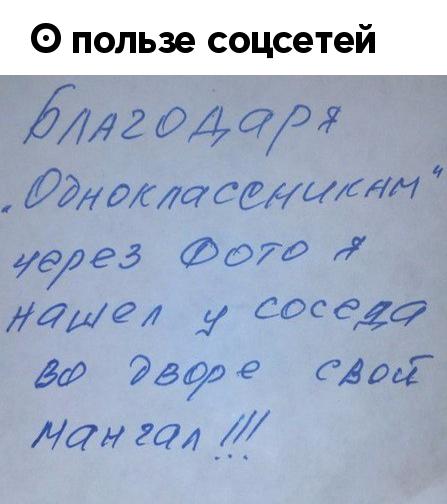 О пользе соцсетей
Благодаря
"Одноклассникам"
через Фото я
нашел у соседа
во дворе свой
мангал!!!